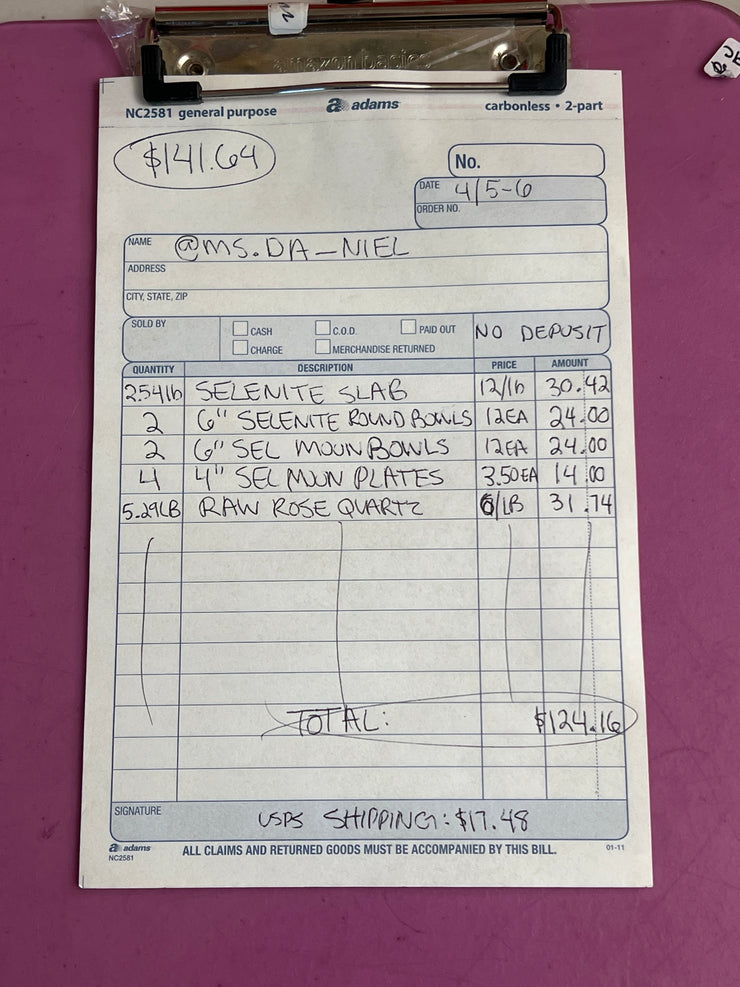 amazon basics
NC2581 general purpose
adams
carbonless • 2-part
$141.64
No.
DATE 4/5-6
ORDER NO.
NAME @MS.DA_NIEL
ADDRESS
CITY, STATE, ZIP
SOLD BY
CASH
C.O.D.
PAID OUT
CHARGE
MERCHANDISE RETURNED
NO DEPOSIT
QUANTITY DESCRIPTION PRICE AMOUNT
2.54lb SELENITE SLAB 12/lb 30.42
2 6" SELENITE ROUND BOWLS 12EA 24.00
2 6" SEL MOON BOWLS 12EA 24.00
4 4" SEL MOON PLATES 3.50EA 14.00
5.29LB RAW ROSE QUARTZ 6/LB 31.74
TOTAL: $124.16
SIGNATURE
USPS SHIPPING: $17.48
adams
NC2581
ALL CLAIMS AND RETURNED GOODS MUST BE ACCOMPANIED BY THIS BILL.
01-11